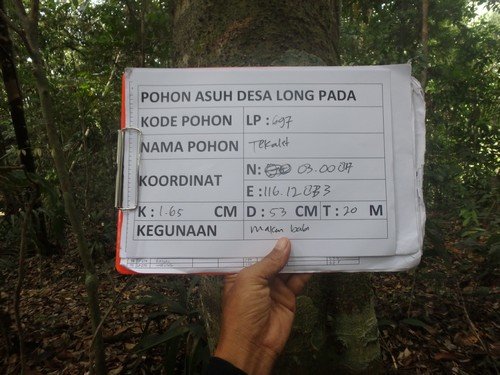 POHON ASUH DESA LONG PADA
KODE POHON LP : 697
NAMA POHON Tekalet
KOORDINAT N: 03.00
E: 116.12
K : 1.65 CM D : 53 CM T : 20 M
KEGUNAAN makan babi